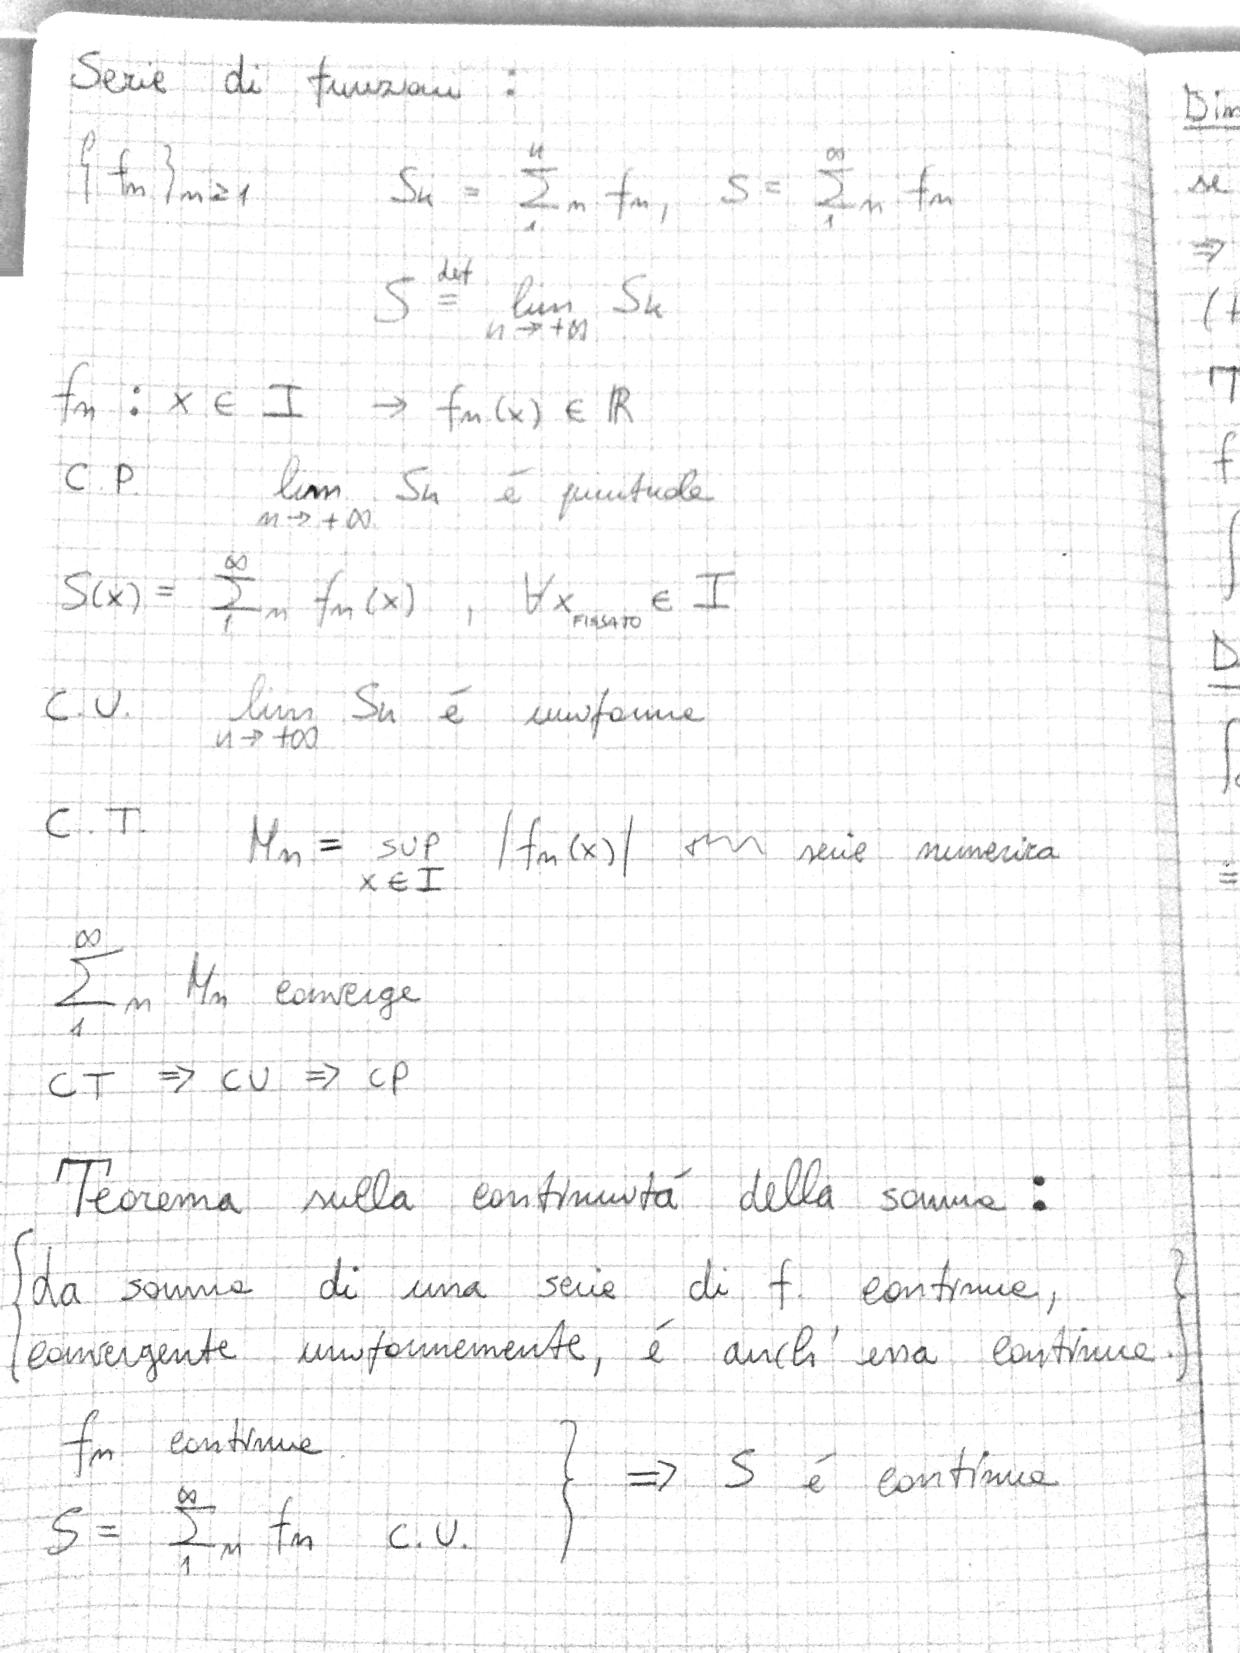 Serie di funzioni :
{fn}n≥1 Sn = Σ₁ⁿ n fn, S = Σ₁^∞ n fn
S def= lim n→+∞ Sn
fn : x ∈ I → fn(x) ∈ ℝ
C.P. lim n→+∞ Sn é puntuale
S(x) = Σ₁^∞ n fn(x) , ∀x FISSATO ∈ I
C.U. lim n→+∞ Sn é uniforme
C.T. Mn = SUP x∈I |fn(x)| serie numerica
Σ₁^∞ n Mn converge
CT ⇒ CU ⇒ CP
Teorema sulla continuitá della somma :
{La somma di una serie di f. continue,
convergente uniformemente, é anch'essa continua.}
fn continue
S = Σ₁^∞ n fn C.U. } ⇒ S é continua
Dim
se
⇒
(
f
∫
D
∫
=